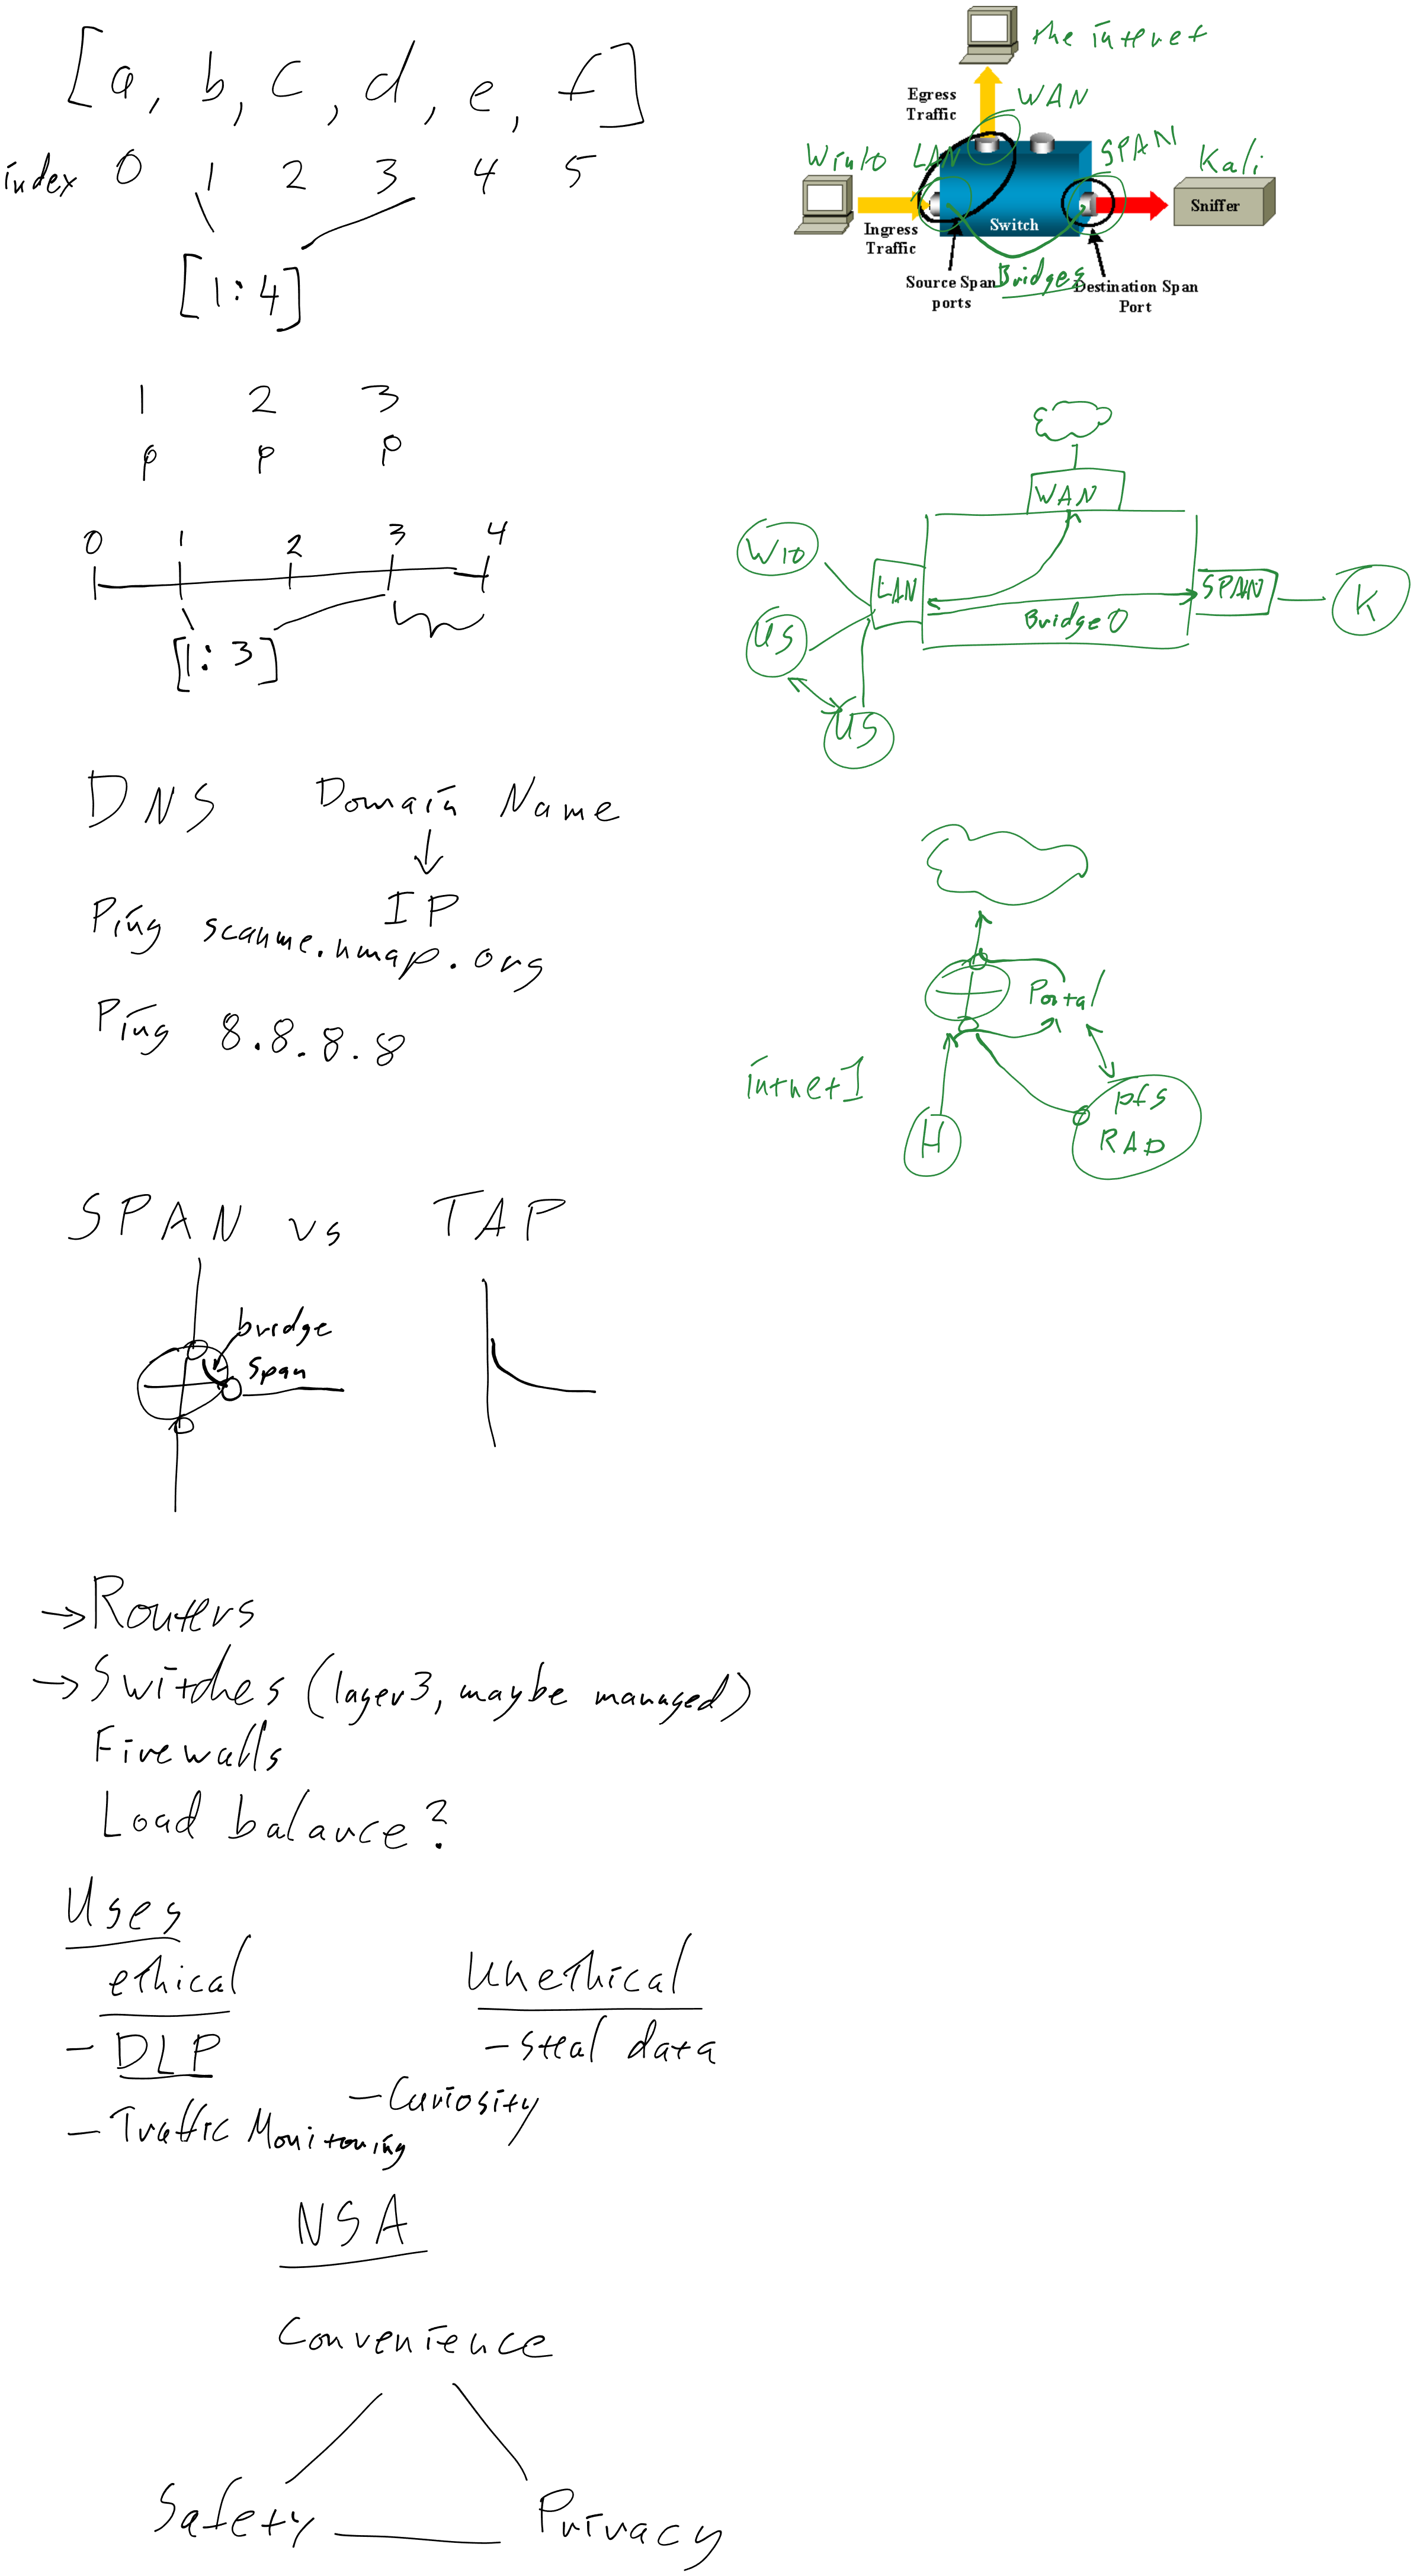 [a, b, c, d, e, f]
index 0 1 2 3 4 5
[1:4]
1 2 3
p p p
0 1 2 3 4
[1:3]
DNS Domain Name
IP
Ping scanme.nmap.org
Ping 8.8.8.8
SPAN vs TAP
bridge
span
→ Routers
→ Switches (layer3, maybe managed)
Firewalls
Load balance?
Uses
ethical unethical
- DLP - steal data
- Curiosity
- Traffic Monitoring
NSA
Convenience
Safety Privacy
the internet
Egress
Traffic
WAN
Win10 LAN SPAN Kali
Sniffer
Switch
Ingress
Traffic
Source Span
ports
Bridges
Destination Span
Port
WAN
W10
LAN
SPAN
K
Bridge0
US
US
Portal
intnet1
H
pfs
RAD